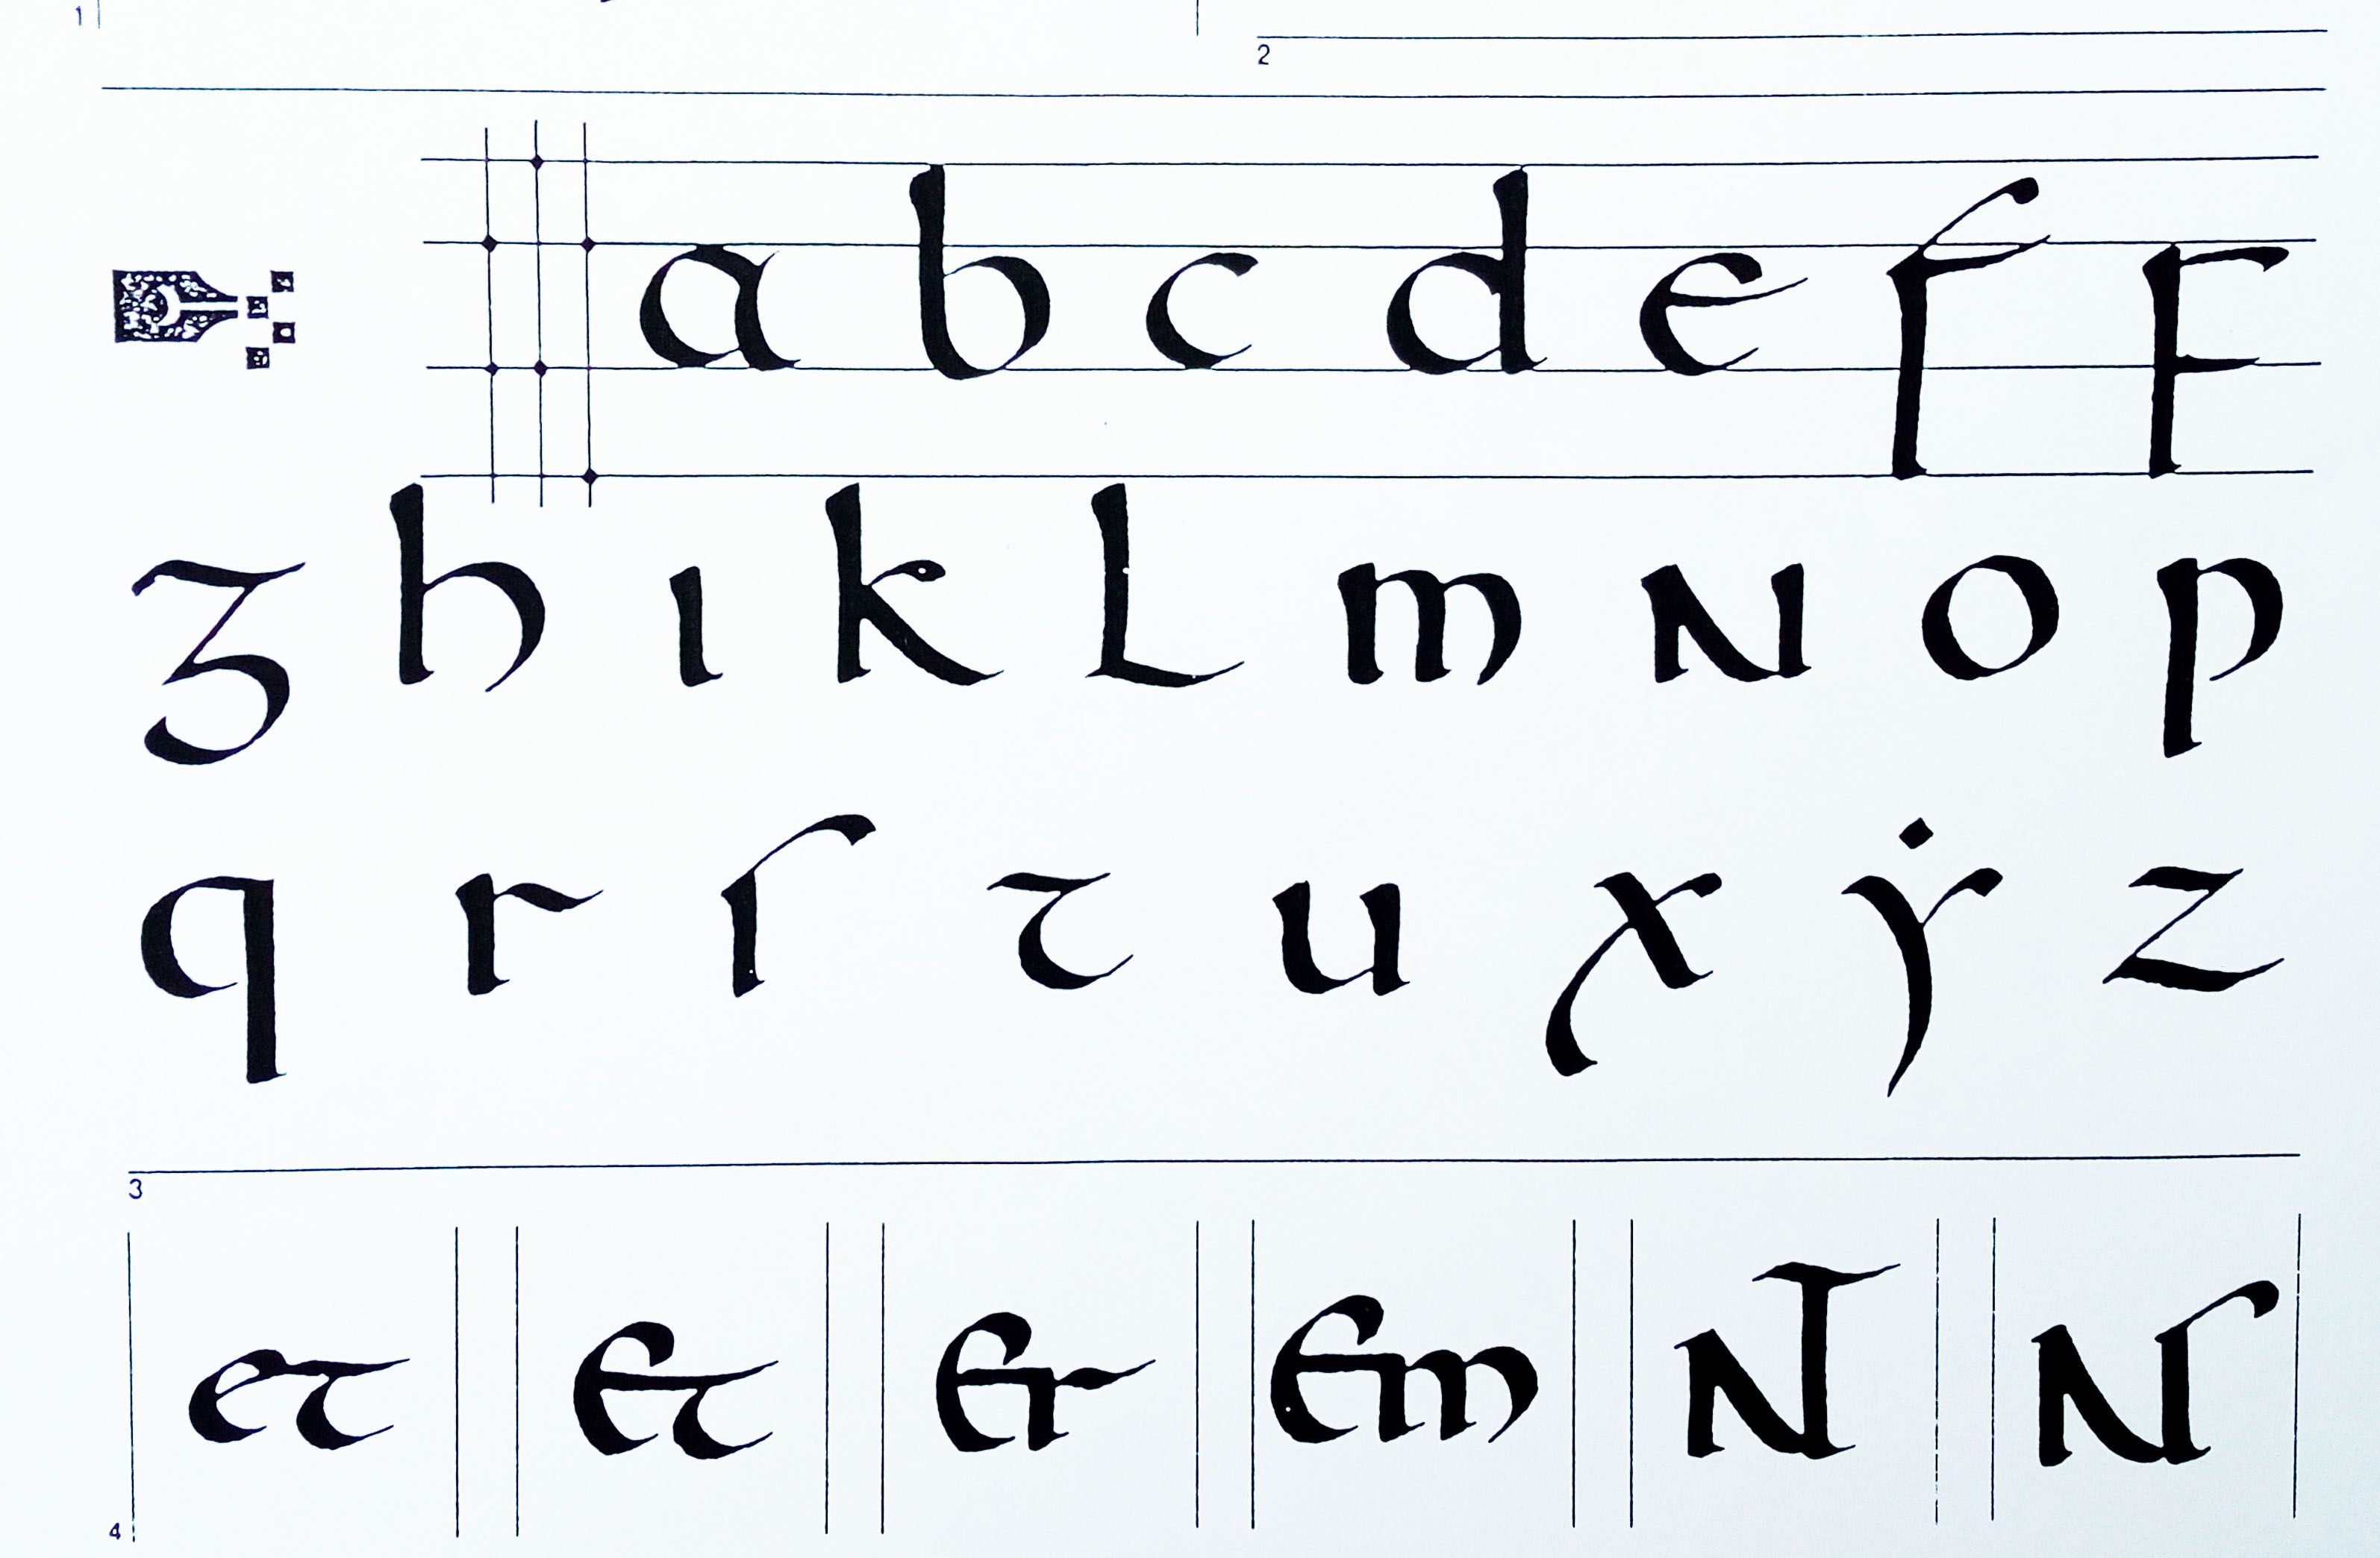 1
2
a b c d e f F
ʒ h ı k L m N o p
q r ſ τ u x ẏ z
3
et et er em NT Nſ
4